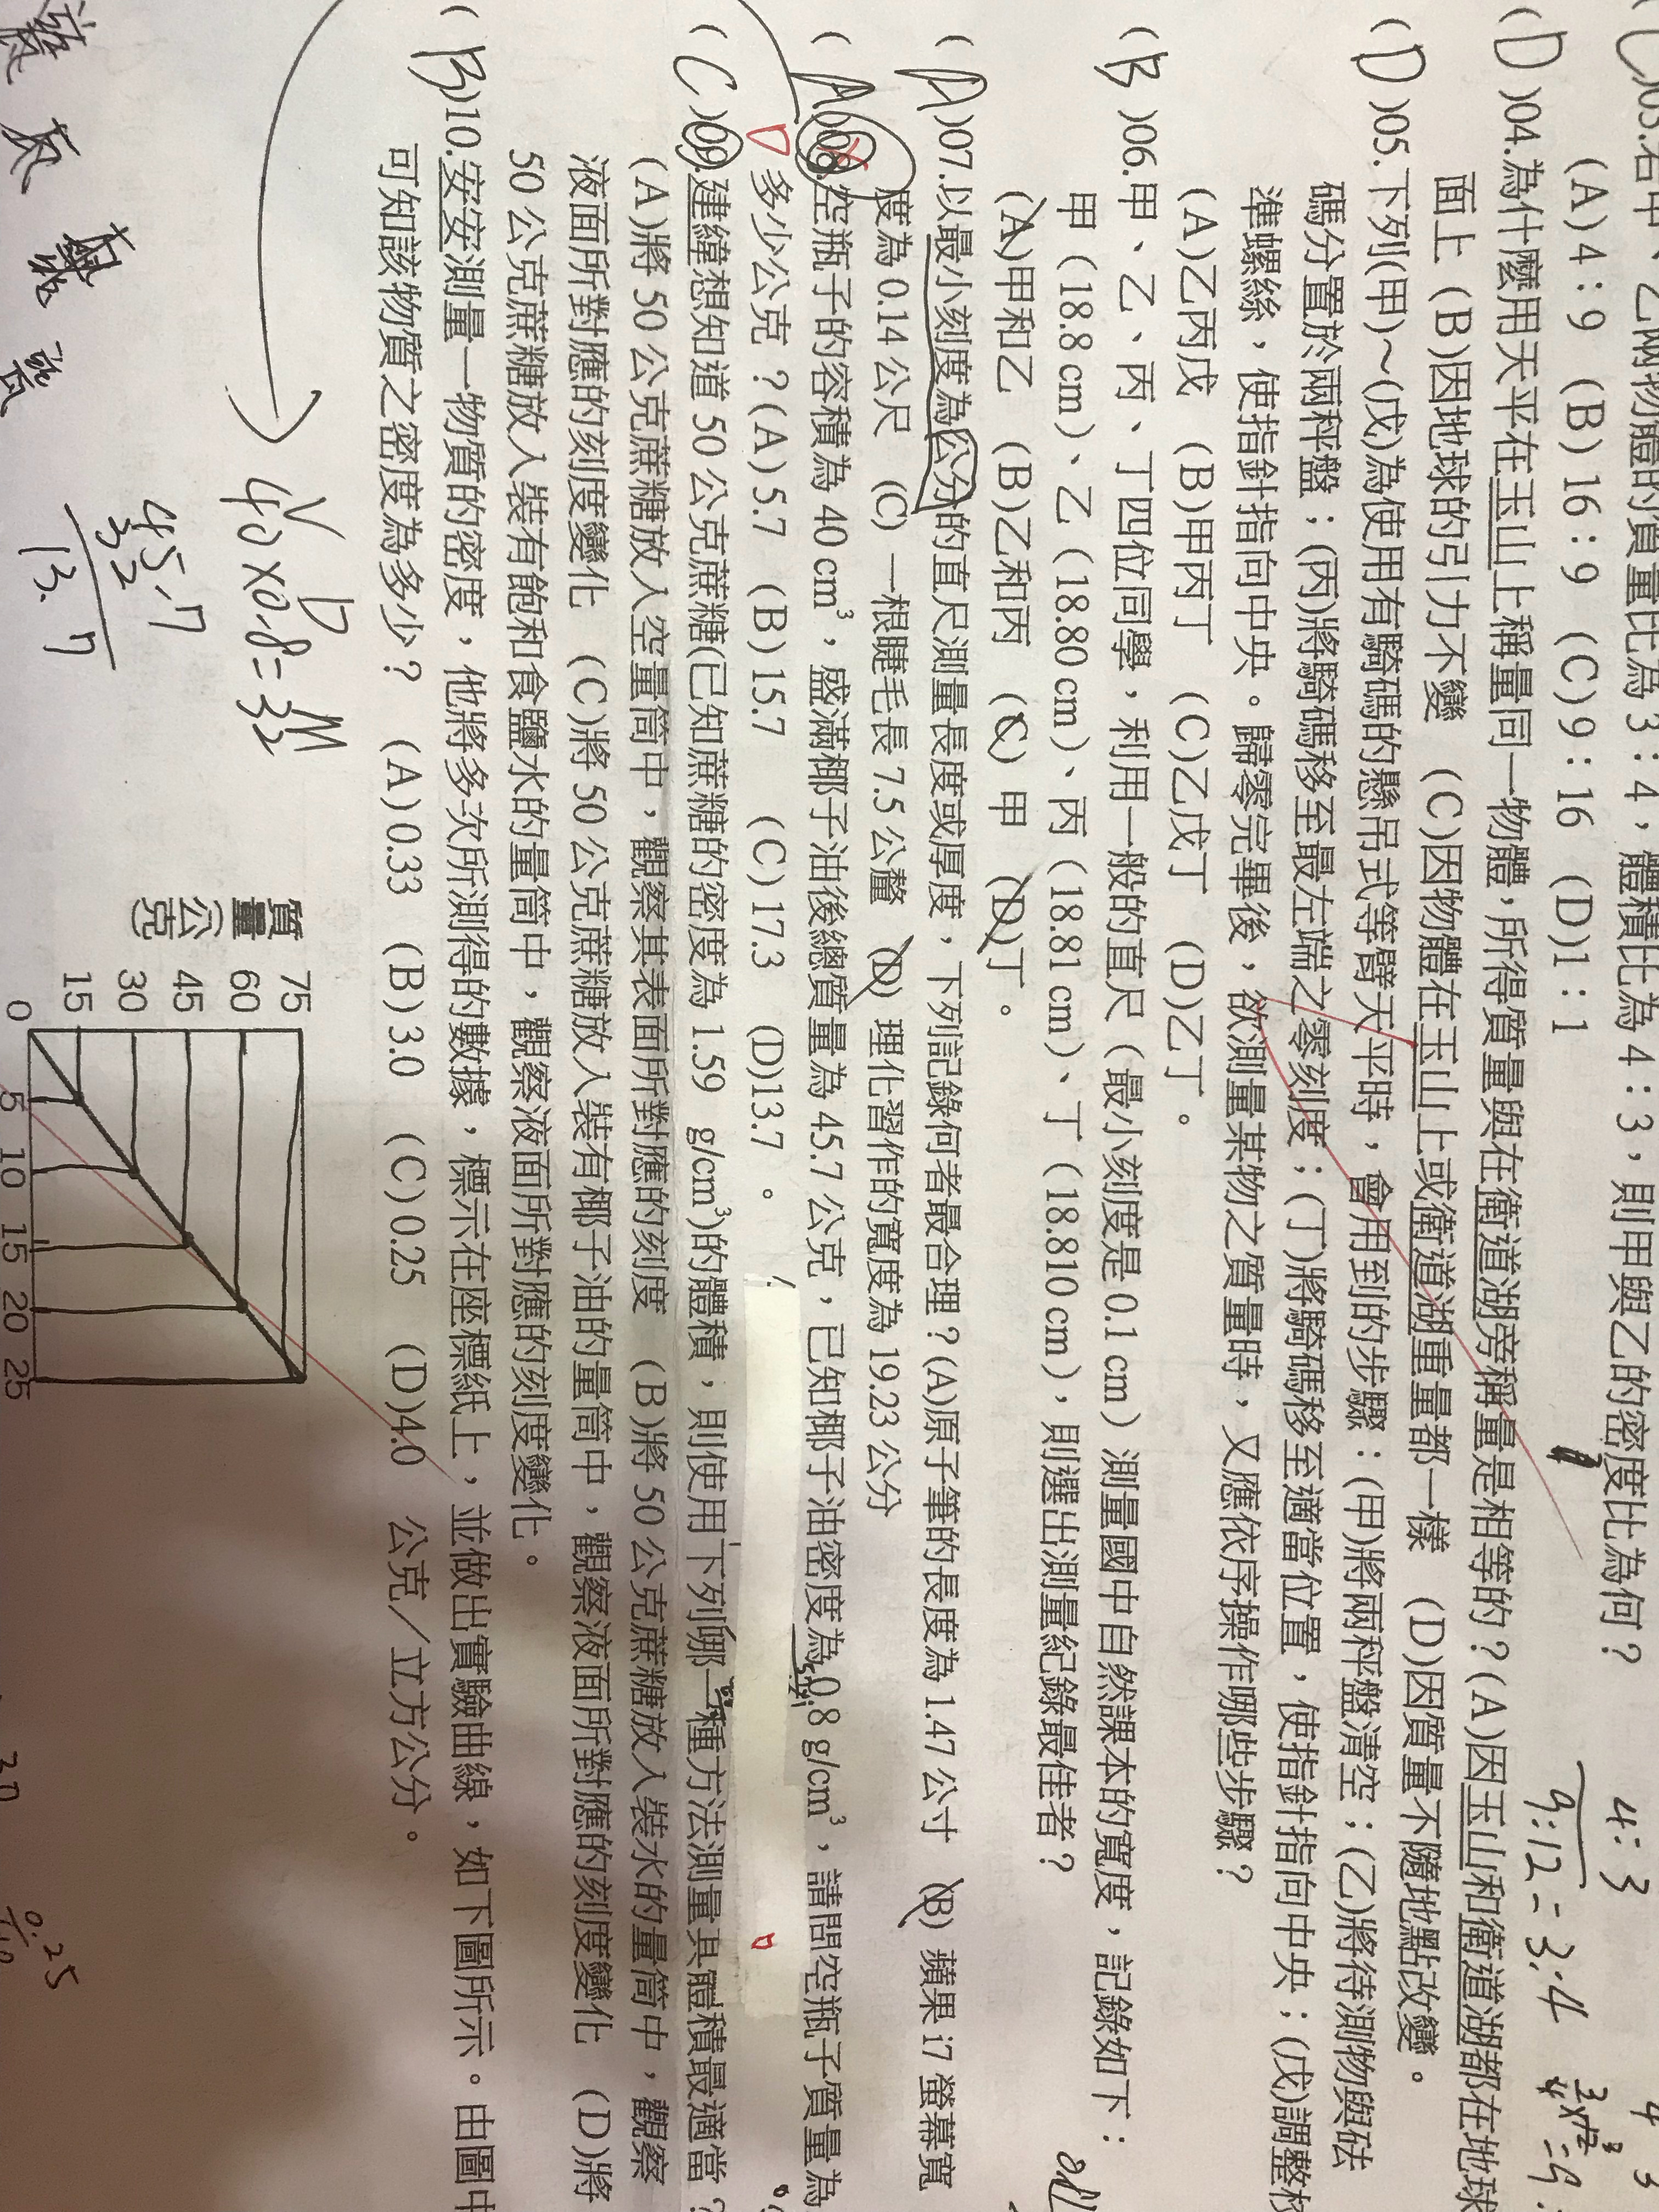 (C)03.右甲、乙兩物體的質量比為 3:4,體積比為 4:3,則甲與乙的密度比為何?
(A)4:9 (B)16:9 (C)9:16 (D)1:1
4:3
9:12=3:4
(D)04.為什麼用天平在玉山上稱量同一物體,所得質量與在衛道湖旁稱量是相等的?(A)因玉山和衛道湖都在地球
面上 (B)因地球的引力不變 (C)因物體在玉山上或衛道湖重量都一樣 (D)因質量不隨地點改變。
(D)05.下列(甲)~(戊)為使用有騎碼的懸吊式等臂天平時,會用到的步驟:(甲)將兩秤盤清空;(乙)將待測物與砝
碼分置於兩秤盤;(丙)將騎碼移至最左端之零刻度;(丁)將騎碼移至適當位置,使指針指向中央;(戊)調整校
準螺絲,使指針指向中央。歸零完畢後,欲測量某物之質量時,又應依序操作哪些步驟?
(A)乙丙戊 (B)甲丙丁 (C)乙戊丁 (D)乙丁。
(B)06.甲、乙、丙、丁四位同學,利用一般的直尺(最小刻度是 0.1 cm)測量國中自然課本的寬度,記錄如下:
甲(18.8 cm)、乙(18.80 cm)、丙(18.81 cm)、丁(18.810 cm),則選出測量紀錄最佳者?
(A)甲和乙 (B)乙和丙 (C) 甲 (D)丁。
(A)07.以最小刻度為公分的直尺測量長度或厚度,下列記錄何者最合理?(A)原子筆的長度為 1.47 公寸 (B) 蘋果 i7 螢幕寬
度為 0.14 公尺 (C) 一根睫毛長 7.5 公釐 (D) 理化習作的寬度為 19.23 公分
(A)08.空瓶子的容積為 40 cm³,盛滿椰子油後總質量為 45.7 公克,已知椰子油密度為 0.8 g/cm³,請問空瓶子質量為
D 多少公克?(A)5.7 (B)15.7 (C)17.3 (D)13.7 。
(C)09.建緯想知道 50 公克蔗糖(已知蔗糖的密度為 1.59 g/cm³)的體積,則使用下列哪一種方法測量其體積最適當?
(A)將 50 公克蔗糖放入空量筒中,觀察其表面所對應的刻度 (B)將 50 公克蔗糖放入裝水的量筒中,觀察
液面所對應的刻度變化 (C)將 50 公克蔗糖放入裝有椰子油的量筒中,觀察液面所對應的刻度變化 (D)將
50 公克蔗糖放入裝有飽和食鹽水的量筒中,觀察液面所對應的刻度變化。
(B)10.安安測量一物質的密度,他將多次所測得的數據,標示在座標紙上,並做出實驗曲線,如下圖所示。由圖中
可知該物質之密度為多少? (A)0.33 (B)3.0 (C)0.25 (D)4.0 公克/立方公分。
V D M
40×0.8=32
45.7
32
13.7
質量(公克)
75
60
45
30
15
0 5 10 15 20 25
0.25